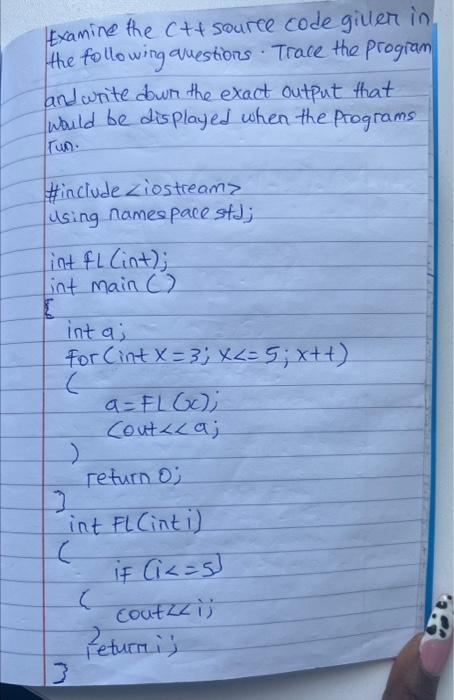 Examine the C++ source code given in
the following questions. Trace the program
and write down the exact output that
would be displayed when the programs
run.
#include <iostream>
using namespace std;
int fL(int);
int main ()
{
int a;
for(int x = 3; x<= 5; x++)
{
a = FL(x);
cout<<a;
}
return 0;
}
int FL(int i)
{
if (i<=5)
{
cout<<i;
}
return i;
}